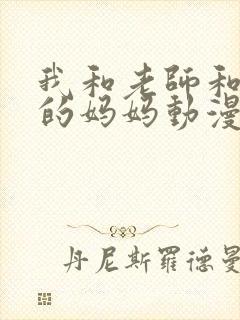 我和老師和
的妈妈動漫
丹尼斯羅德曼